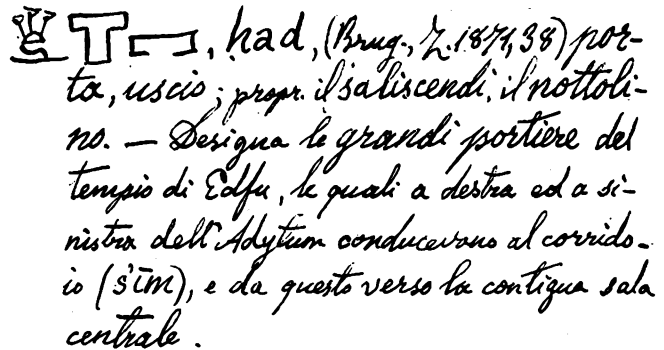 , ḥad, (Brug., Z. 1871, 38) por-
ta, uscio; propr. il saliscendi, il nottoli-
no. — Designa le grandi portiere del
tempio di Edfu, le quali a destra ed a si-
nistra dell'Adytum conducevano al corrido-
io (šim), e da questo verso la contigua sala
centrale.